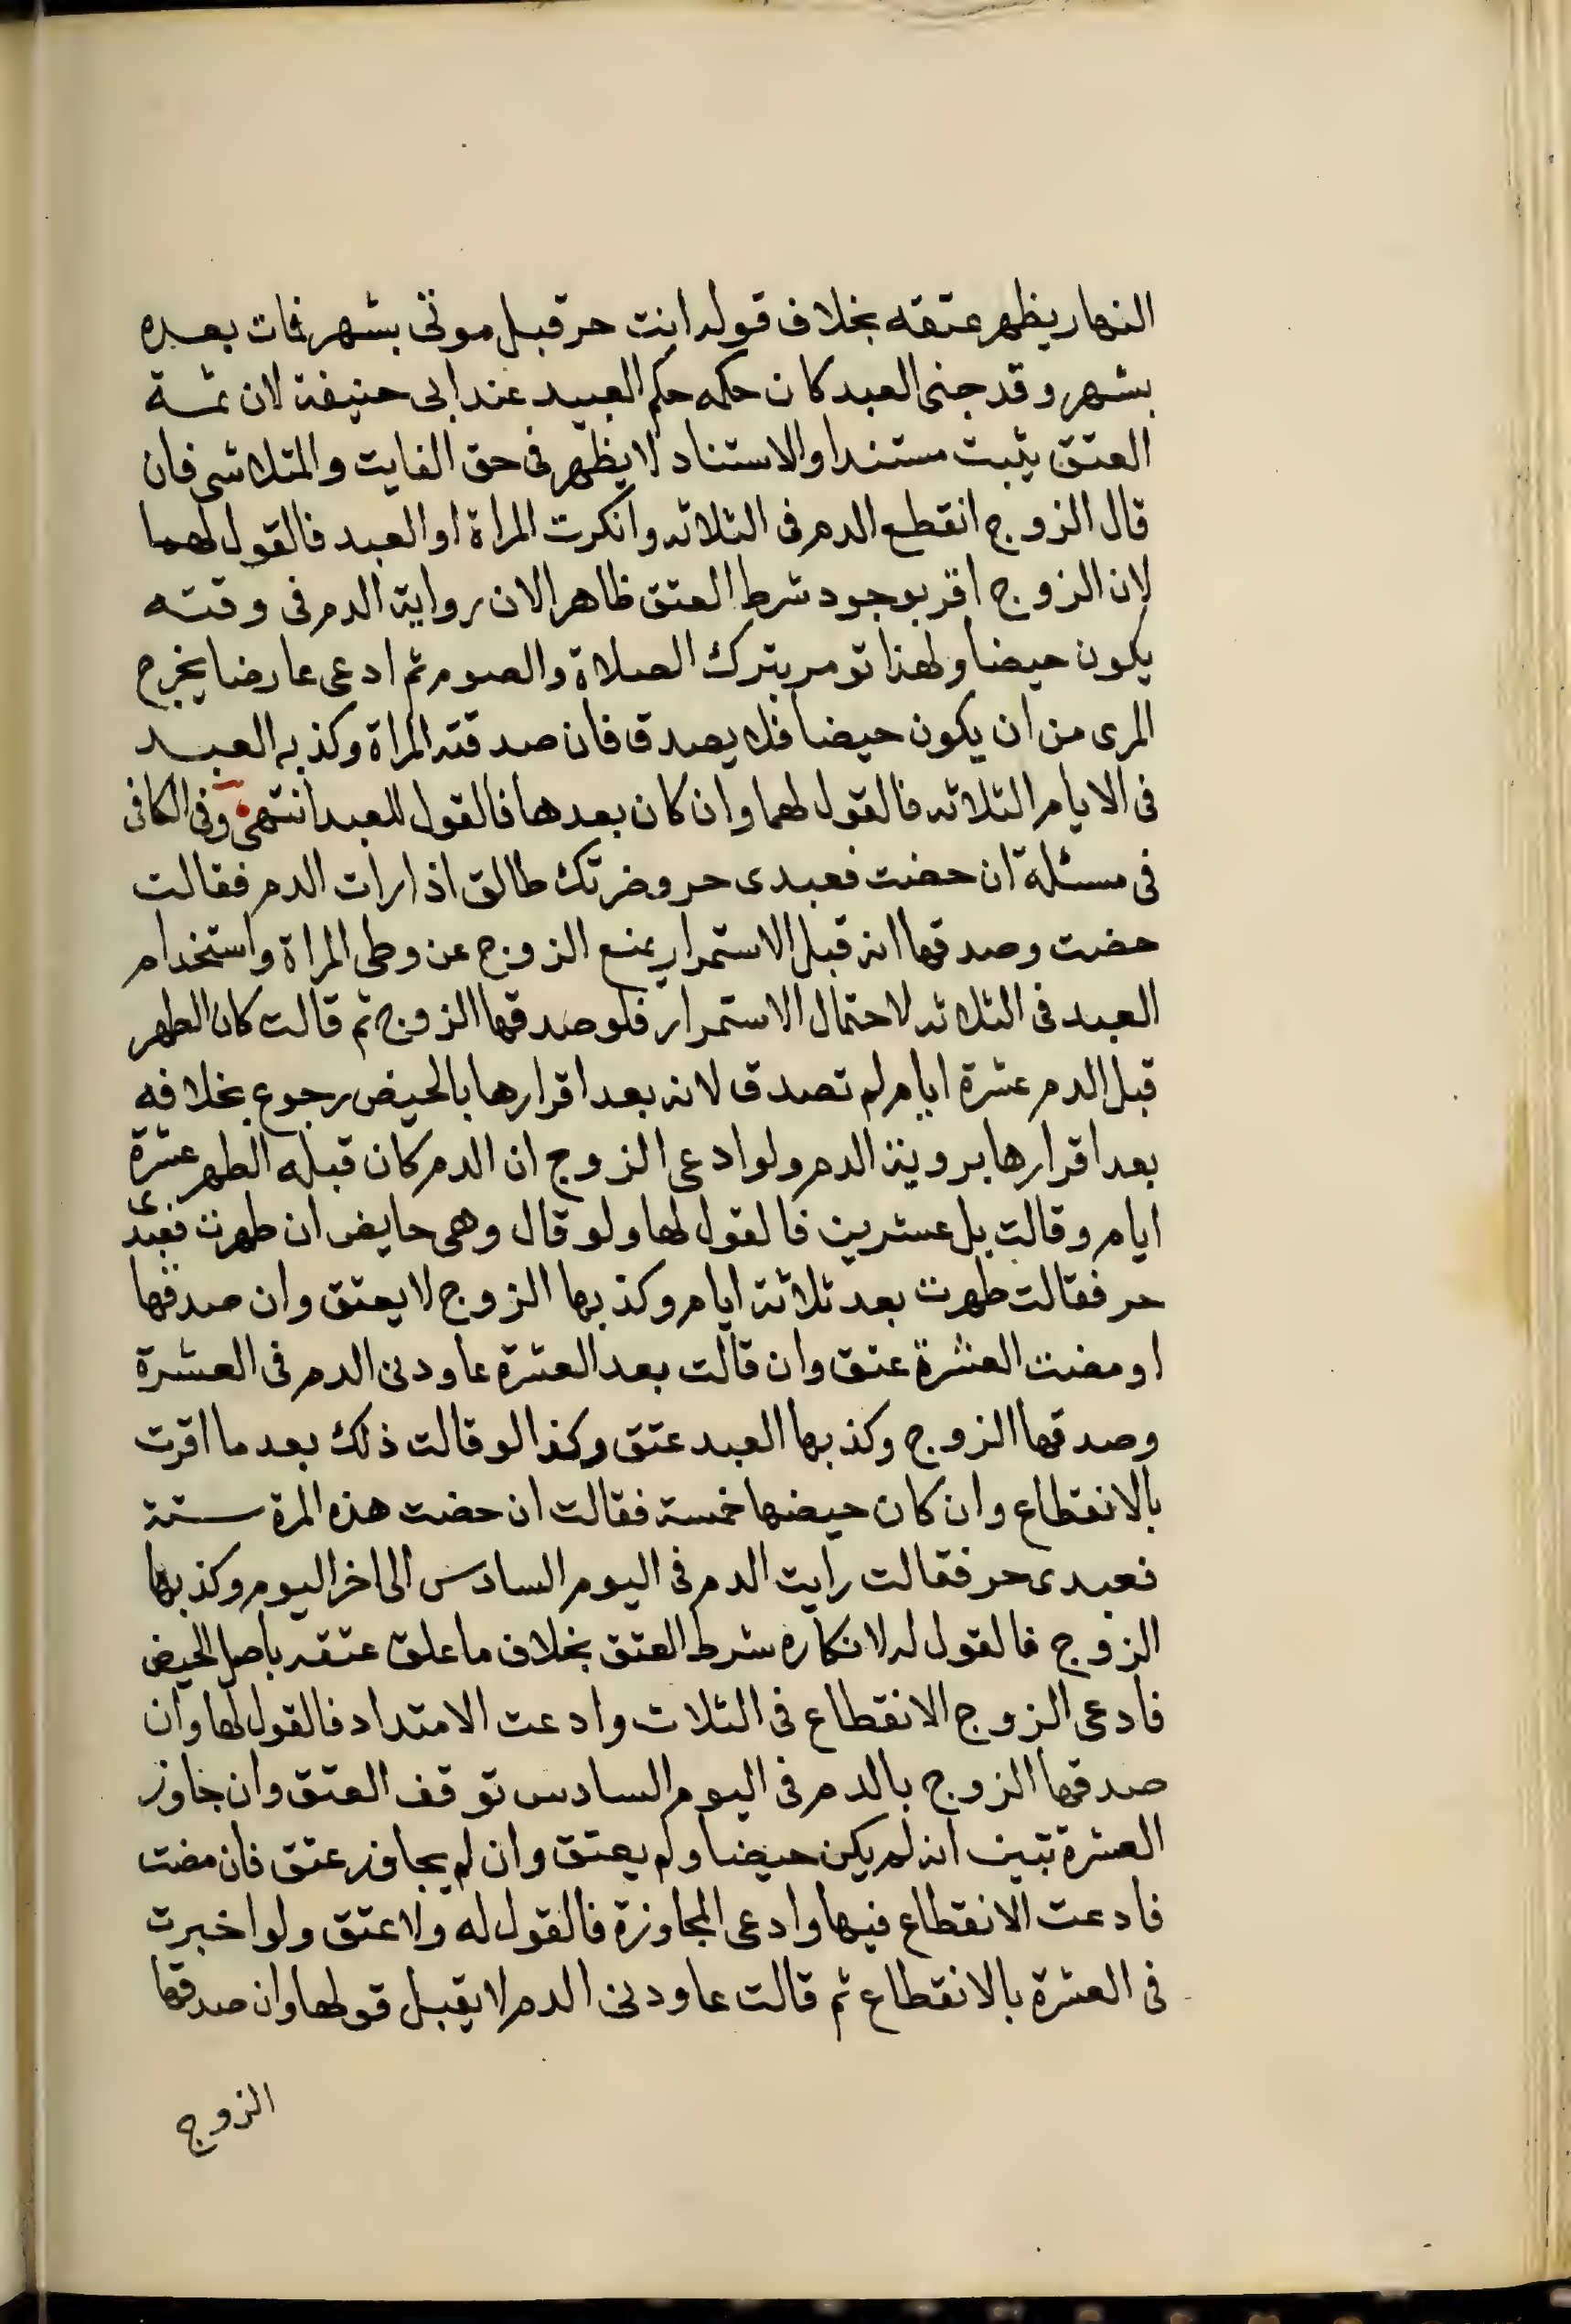 النهار يظهر عتقه بخلاف قوله انت حر قبل موتى بشهر فمات بعده
بشهر وقد جنى العبد كان حكمه حكم العبيد عند ابى حنيفة لان ثمة
العتق يثبت مستندا والاستناد لا يظهر فى حق الفايت والمتلاشى فان
قال الزوج انقطع الدم فى الثلاثه وانكرت المراة او العبد فالقول لهما
لان الزوج اقر بوجود شرط العتق ظاهرا لان رواية الدم فى وقته
يكون حيضا ولهذا تومر بترك الصلاة والصوم ثم ادعى عارضا يخرج
المرى من ان يكون حيضا فلا يصدق فان صدقته المراة وكذبه العبد
فى الايام الثلاثه فالقول لهما وان كان بعدها فالقول للعبد انتهى وفى الكافى
فى مسئلة ان حضت فعبدى حر وضرتك طالق اذا رات الدم فقالت
حضت وصدقها انه قبل الاستمرار يمنع الزوج عن وطى المراة واستخدام
العبد فى الثلاثه لاحتمال الاستمرار فلو صدقها الزوج ثم قالت كان الطهر
قبل الدم عشرة ايام لم تصدق لانه بعد اقرارها بالحيض رجوع بخلافه
بعد اقرارها بروية الدم ولو ادعى الزوج ان الدم كان قبله الطهر عشرة
ايام وقالت بل عشرين فالقول لها ولو قال وهى حايض ان طهرت فعبدى
حر فقالت طهرت بعد ثلاثة ايام وكذبها الزوج لا يعتق وان صدقها
او مضت العشرة عتق وان قالت بعد العشرة عاودنى الدم فى العشرة
وصدقها الزوج وكذبها العبد عتق وكذا لو قالت ذلك بعد ما اقرت
بالانقطاع وان كان حيضها خمسة فقالت ان حضت هذه المرة ستة
فعبدى حر فقالت رايت الدم فى اليوم السادس الى اخر اليوم وكذبها
الزوج فالقول له لانكاره شرط العتق بخلاف ما علق عتقه باصل الحيض
فادعى الزوج الانقطاع فى الثلاث وادعت الامتداد فالقول لها وان
صدقها الزوج بالدم فى اليوم السادس توقف العتق وان جاوز
العشرة تبين انه لم يكن حيضا ولم يعتق وان لم يجاوز عتق فان مضت
فادعت الانقطاع فيها وادعى المجاوزة فالقول له ولا عتق ولو اخبرت
فى العشرة بالانقطاع ثم قالت عاودنى الدم لا يقبل قولها وان صدقها
الزوج